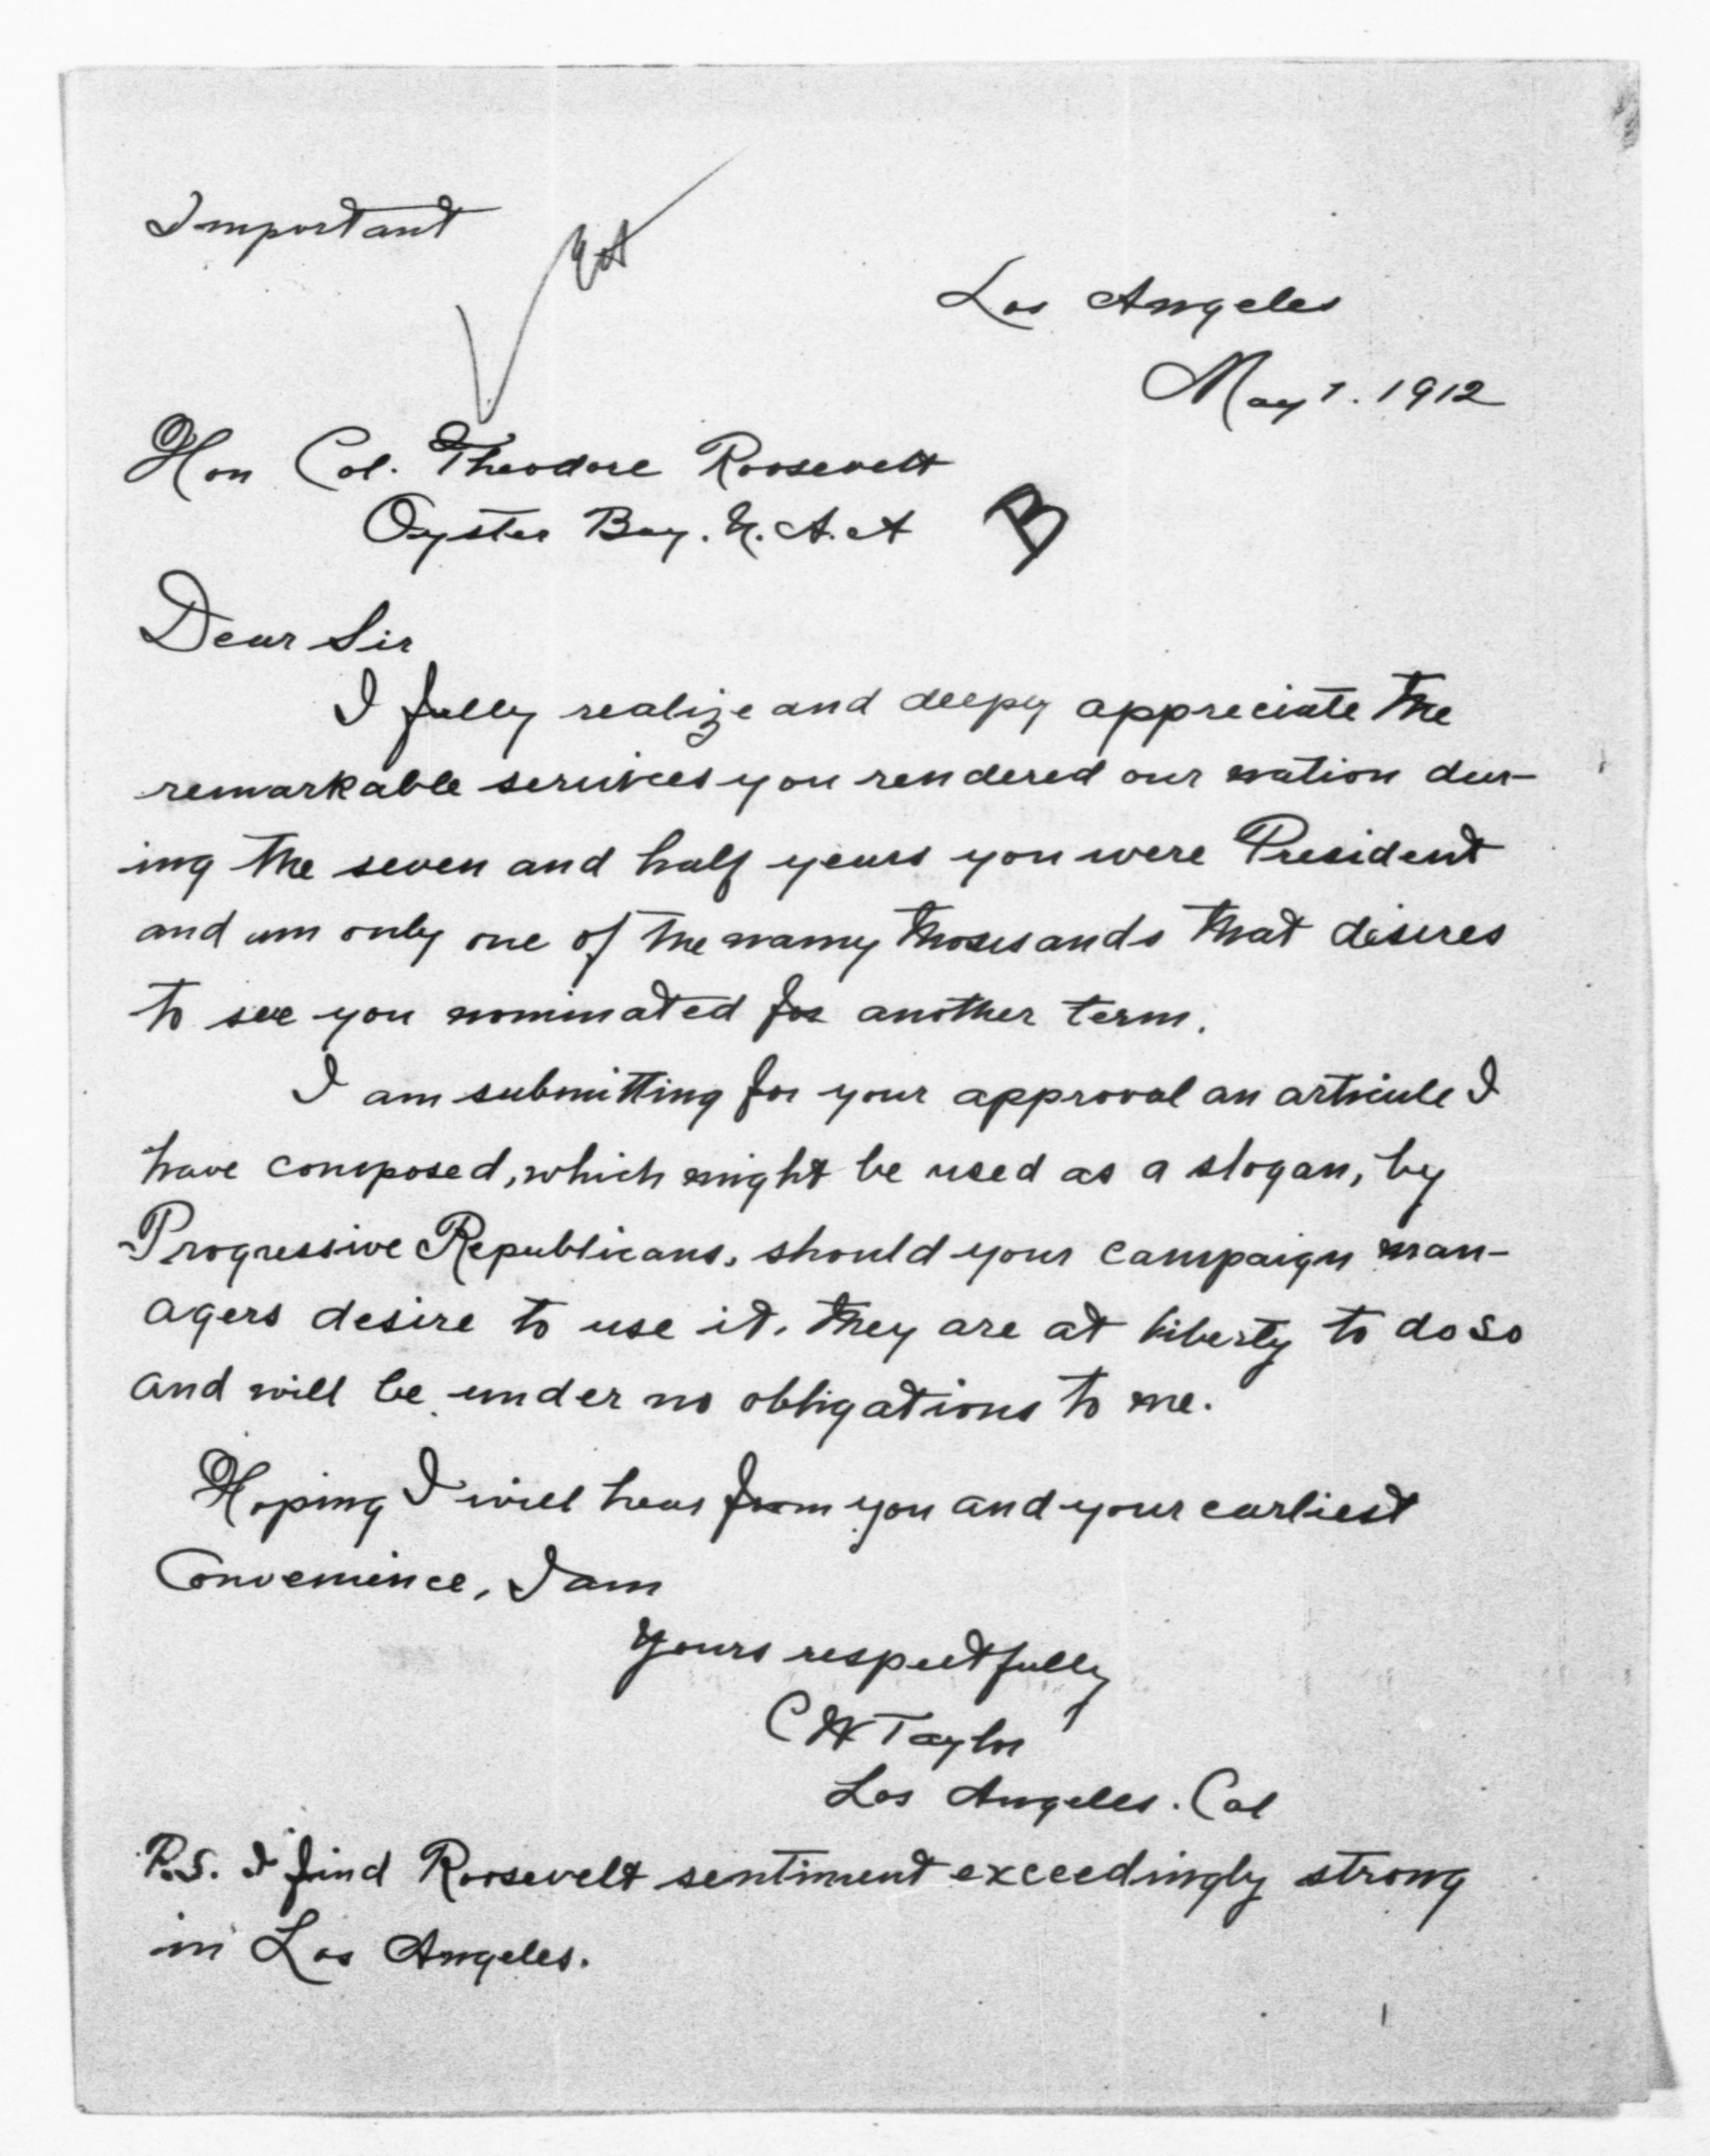 Important
Los Angeles
May 7. 1912
Hon Col. Theodore Roosevelt
Oyster Bay. N. A. A
B
Dear Sir
I fully realize and deepy appreciate the
remarkable services you rendered our nation dur-
ing the seven and half years you were President
and am only one of the many thousands that disires
to see you nominated for another term.
I am submitting for your approval an articule I
have composed, which might be used as a slogan, by
Progressive Republicans, should your campaign man-
agers desire to use it. they are at liberty to do so
and will be under no obligations to me.
Hoping I will hear from you and your earliest
Convenience, I am
Yours respectfully
C W Taylor
Los Angeles. Cal
P.S. I find Roosevelt sentiment exceedingly strong
in Los Angeles.